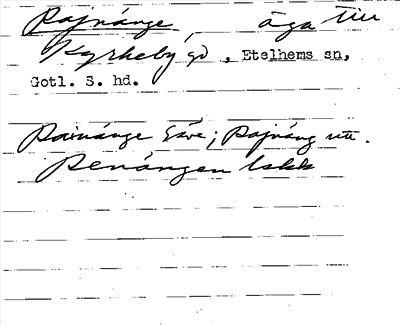 Rajnänge, äga till
Kyrkeby gd, Etelhems sn,
Gotl. S. hd.
Rainänge Säve; Rajnäng utt.
Renängen lskk